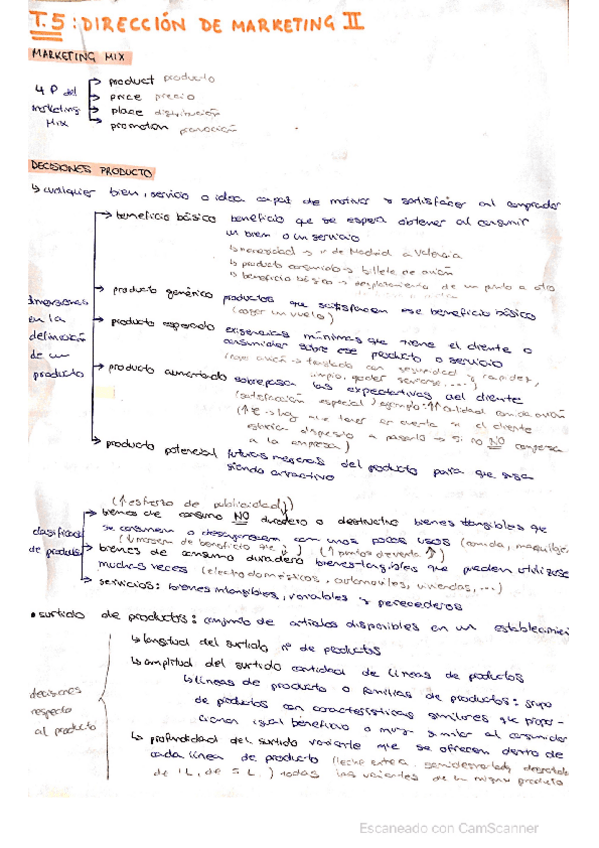 T.5: DIRECCIÓN DE MARKETING II
MARKETING MIX
4 P del marketing mix
product producto
price precio
place distribución
promotion promoción
DECISIONES PRODUCTO
↳ cualquier bien, servicio o idea capaz de motivar y satisfacer al comprador
dimensiones en la delimitación de un producto
beneficio básico beneficio que se espera obtener al consumir
un bien o un servicio
↳ necesidad → ir de Madrid a Valencia
↳ producto consumido → billete de avión
↳ beneficio básico → desplazamiento de un punto a otro
producto genérico productos que satisfacen ese beneficio básico
(coger un vuelo)
producto esperado exigencias mínimas que tiene el cliente o
consumidor sobre ese producto o servicio
(coger avión → traslado con seguridad y rapidez,
limpio, ...)
producto aumentado sobrepasa las expectativas del cliente
(satisfacción especial) ejemplo: ↑↑ calidad comida avión
(↑€ → hay que tener en cuenta si el cliente
estaría dispuesto a pagarlo → si no NO compensa
a la empresa)
producto potencial futuras mejoras del producto para que siga
siendo atractivo
clasificación de productos
(↑ esfuerzo de publicidad)
bienes de consumo NO duradero o destructivo bienes tangibles que
se consumen o desaparecen con unos pocos usos (comida, maquillaje,
(↓ margen de beneficio) (↑ puntos de venta ↑)
bienes de consumo duradero bienes tangibles que pueden utilizarse
muchas veces (electrodomésticos, automóviles, viviendas, ...)
servicios: bienes intangibles, variables y perecederos
• surtido de productos: conjunto de artículos disponibles en un establecimien
decisiones respecto al producto
↳ longitud del surtido nº de productos
↳ amplitud del surtido cantidad de líneas de productos
↳ líneas de producto o familias de productos: grupo
de productos con características similares que propor-
cionan igual beneficio o muy similar al consumidor
↳ profundidad del surtido variante que se ofrecen dentro de
cada línea de producto (leche entera, semidesnatada, desnatada
de 1L, de 5L.) todas las variantes de un mismo producto
Escaneado con CamScanner